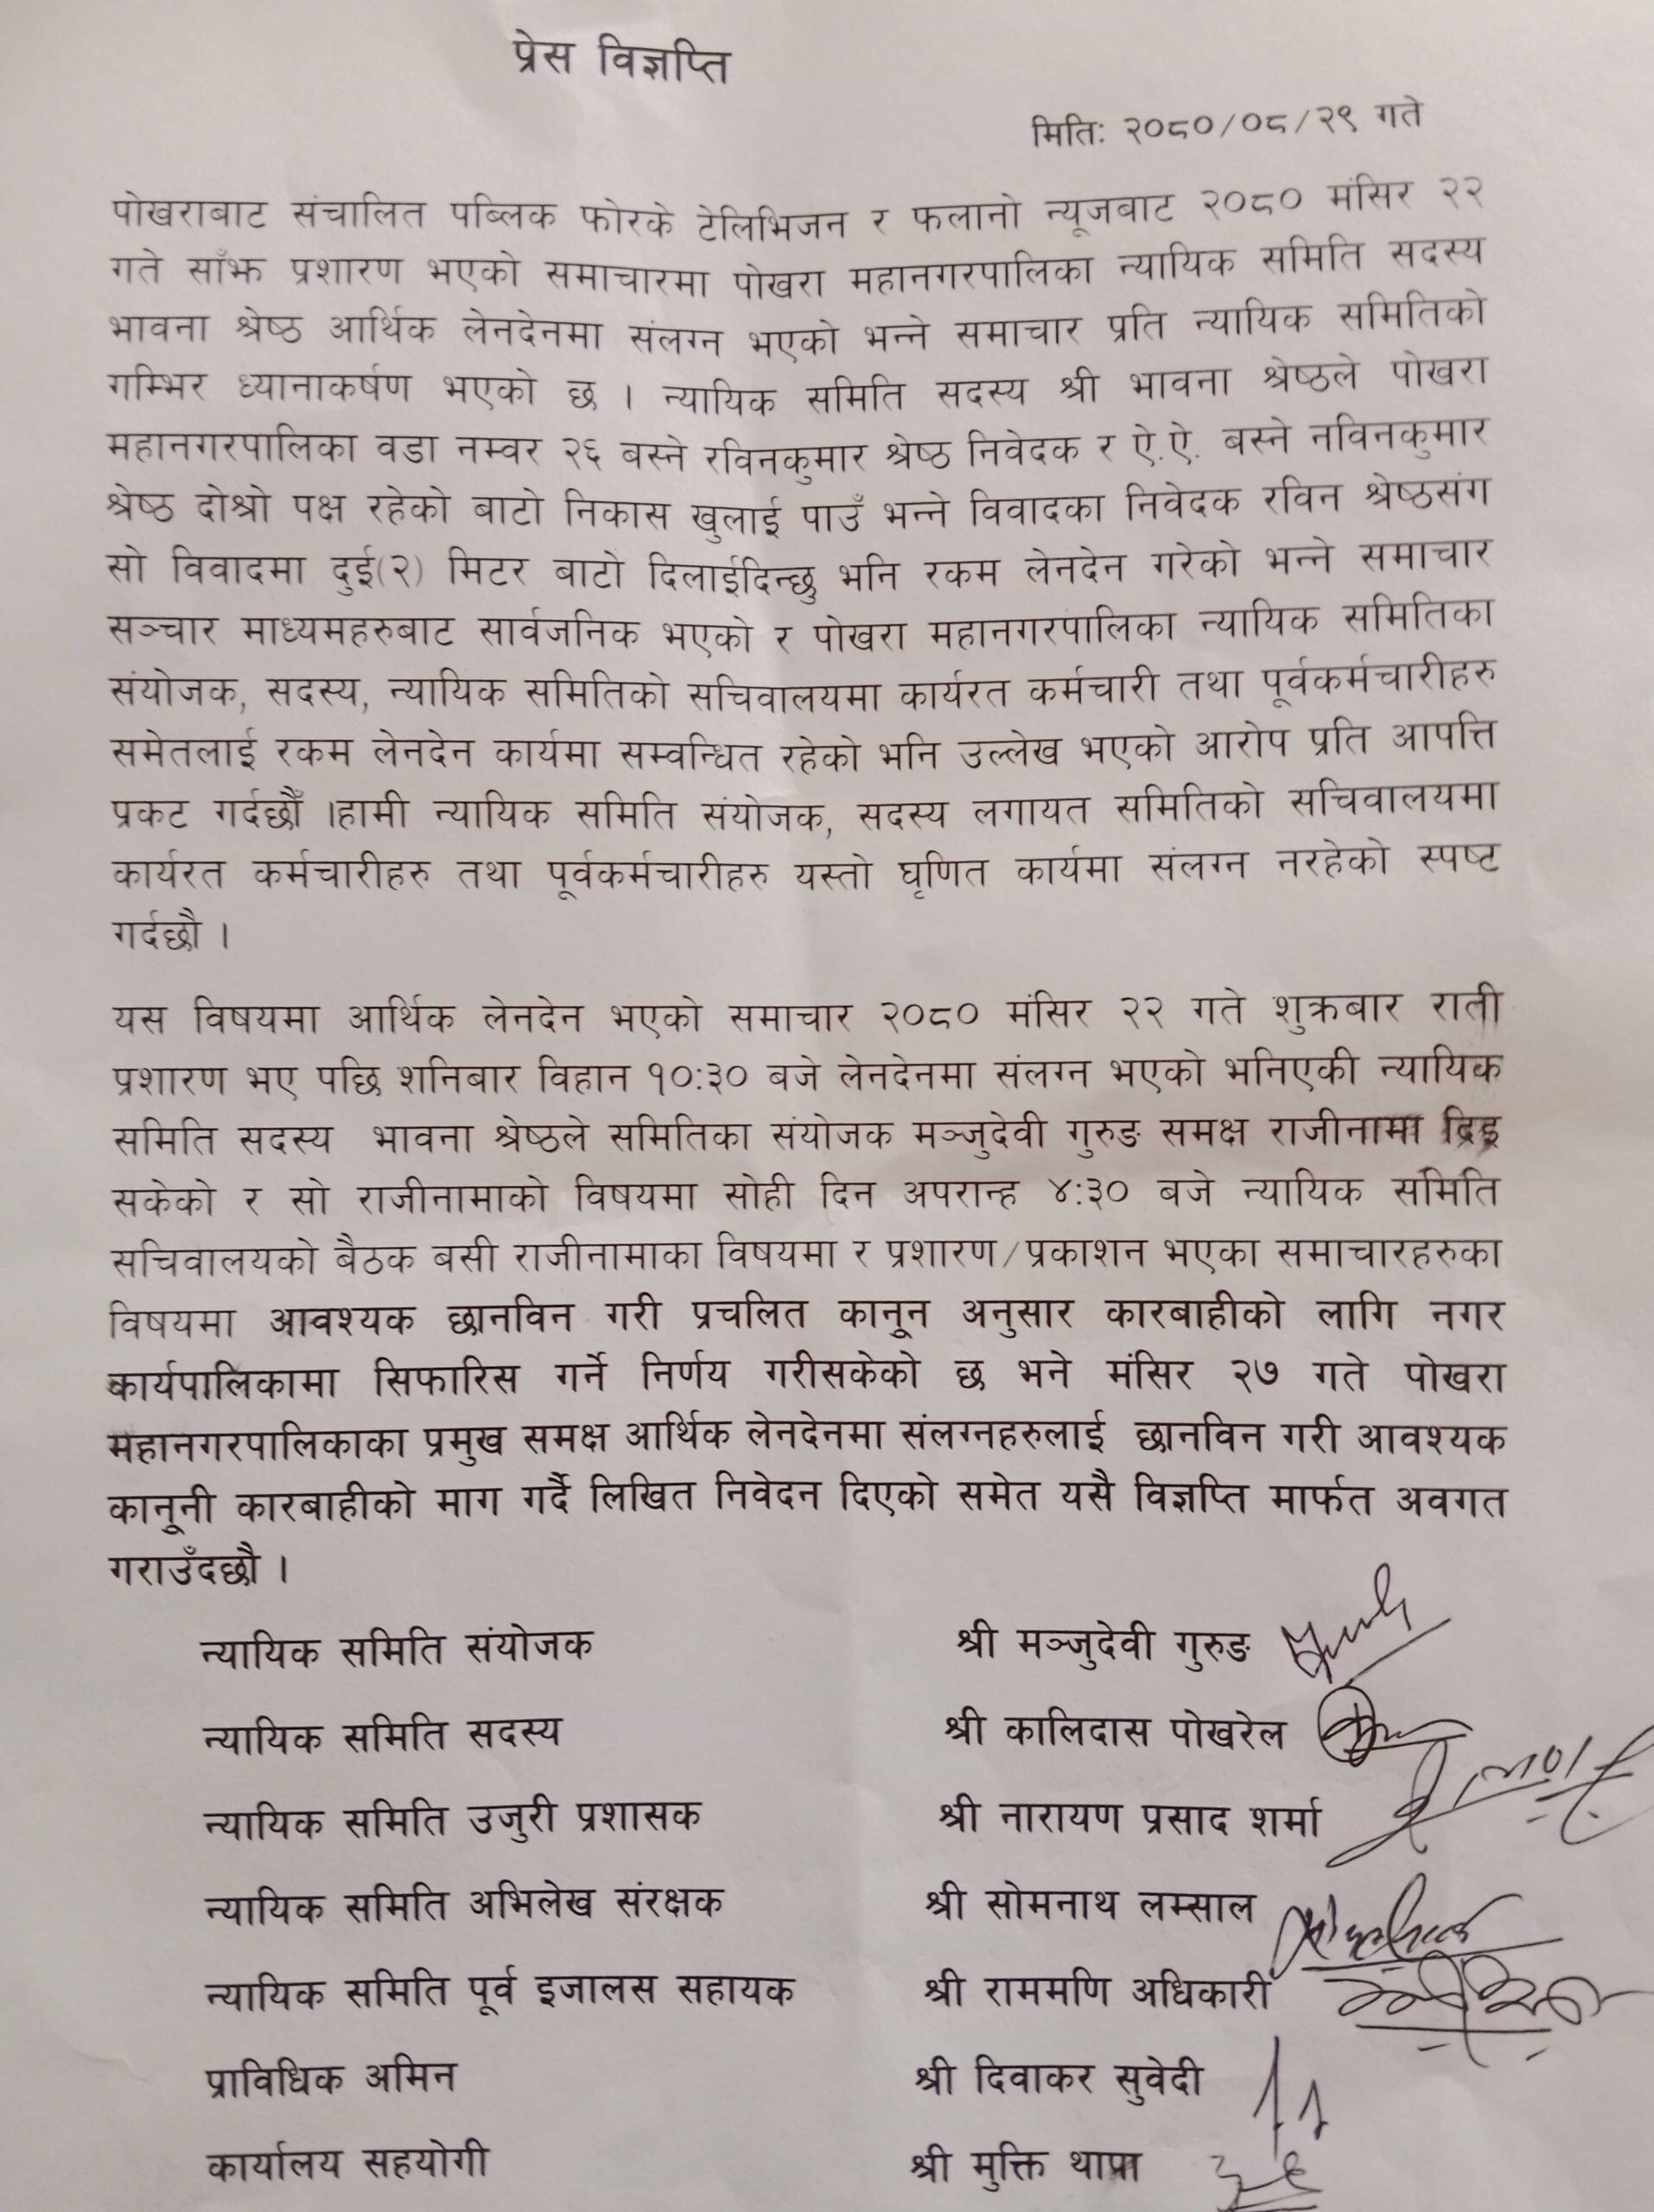 प्रेस विज्ञप्ति
मितिः २०८०/०८/२९ गते
पोखराबाट संचालित पब्लिक फोरके टेलिभिजन र फलानो न्यूजबाट २०८० मंसिर २२
गते साँझ प्रशारण भएको समाचारमा पोखरा महानगरपालिका न्यायिक समिति सदस्य
भावना श्रेष्ठ आर्थिक लेनदेनमा संलग्न भएको भन्ने समाचार प्रति न्यायिक समितिको
गम्भिर ध्यानाकर्षण भएको छ । न्यायिक समिति सदस्य श्री भावना श्रेष्ठले पोखरा
महानगरपालिका वडा नम्वर २६ बस्ने रविनकुमार श्रेष्ठ निवेदक र ऐ.ऐ. बस्ने नविनकुमार
श्रेष्ठ दोश्रो पक्ष रहेको बाटो निकास खुलाई पाउँ भन्ने विवादका निवेदक रविन श्रेष्ठसंग
सो विवादमा दुई(२) मिटर बाटो दिलाईदिन्छु भनि रकम लेनदेन गरेको भन्ने समाचार
सञ्चार माध्यमहरुबाट सार्वजनिक भएको र पोखरा महानगरपालिका न्यायिक समितिका
संयोजक, सदस्य, न्यायिक समितिको सचिवालयमा कार्यरत कर्मचारी तथा पूर्वकर्मचारीहरु
समेतलाई रकम लेनदेन कार्यमा सम्वन्धित रहेको भनि उल्लेख भएको आरोप प्रति आपत्ति
प्रकट गर्दछौँ ।हामी न्यायिक समिति संयोजक, सदस्य लगायत समितिको सचिवालयमा
कार्यरत कर्मचारीहरु तथा पूर्वकर्मचारीहरु यस्तो घृणित कार्यमा संलग्न नरहेको स्पष्ट
गर्दछौ ।
यस विषयमा आर्थिक लेनदेन भएको समाचार २०८० मंसिर २२ गते शुक्रबार राती
प्रशारण भए पछि शनिबार विहान १०:३० बजे लेनदेनमा संलग्न भएको भनिएकी न्यायिक
समिति सदस्य भावना श्रेष्ठले समितिका संयोजक मञ्जुदेवी गुरुङ समक्ष राजीनामा
सकेको र सो राजीनामाको विषयमा सोही दिन अपरान्ह ४:३० बजे न्यायिक समिति
सचिवालयको बैठक बसी राजीनामाका विषयमा र प्रशारण/प्रकाशन भएका समाचारहरुका
विषयमा आवश्यक छानविन गरी प्रचलित कानून अनुसार कारबाहीको लागि नगर
कार्यपालिकामा सिफारिस गर्ने निर्णय गरीसकेको छ भने मंसिर २७ गते पोखरा
महानगरपालिकाका प्रमुख समक्ष आर्थिक लेनदेनमा संलग्नहरुलाई छानविन गरी आवश्यक
कानूनी कारबाहीको माग गर्दै लिखित निवेदन दिएको समेत यसै विज्ञप्ति मार्फत अवगत
गराउँदछौ ।
न्यायिक समिति संयोजक श्री मञ्जुदेवी गुरुङ
न्यायिक समिति सदस्य श्री कालिदास पोखरेल
न्यायिक समिति उजुरी प्रशासक श्री नारायण प्रसाद शर्मा
न्यायिक समिति अभिलेख संरक्षक श्री सोमनाथ लम्साल
न्यायिक समिति पूर्व इजालस सहायक श्री राममणि अधिकारी
प्राविधिक अमिन श्री दिवाकर सुवेदी
कार्यालय सहयोगी श्री मुक्ति थापा